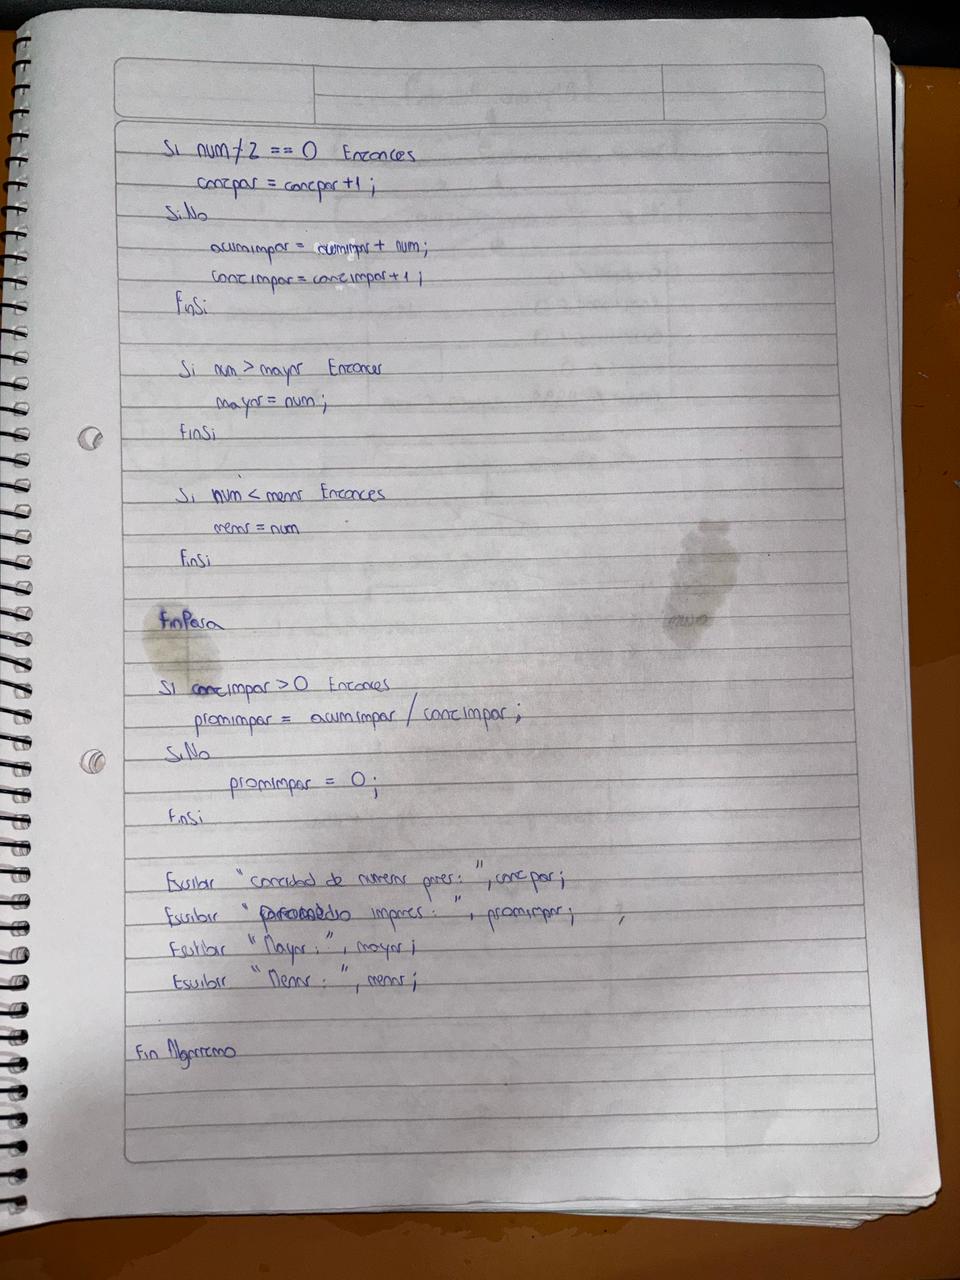 Si num % 2 == 0 Entonces
contpar = contpar + 1;
SiNo
acumimpar = acumimpar + num;
contimpar = contimpar + 1;
FinSi
Si num > mayor Entonces
mayor = num;
FinSi
Si num < menor Entonces
menor = num
FinSi
FinPara
Si contimpar > 0 Entonces
promimpar = acumimpar / contimpar;
SiNo
promimpar = 0;
FinSi
Escribir "Cantidad de numeros pares: ", contpar;
Escribir " impares: ", promimpar;
Escribir "Mayor: ", mayor;
Escribir "Menor: ", menor;
Fin Algoritmo